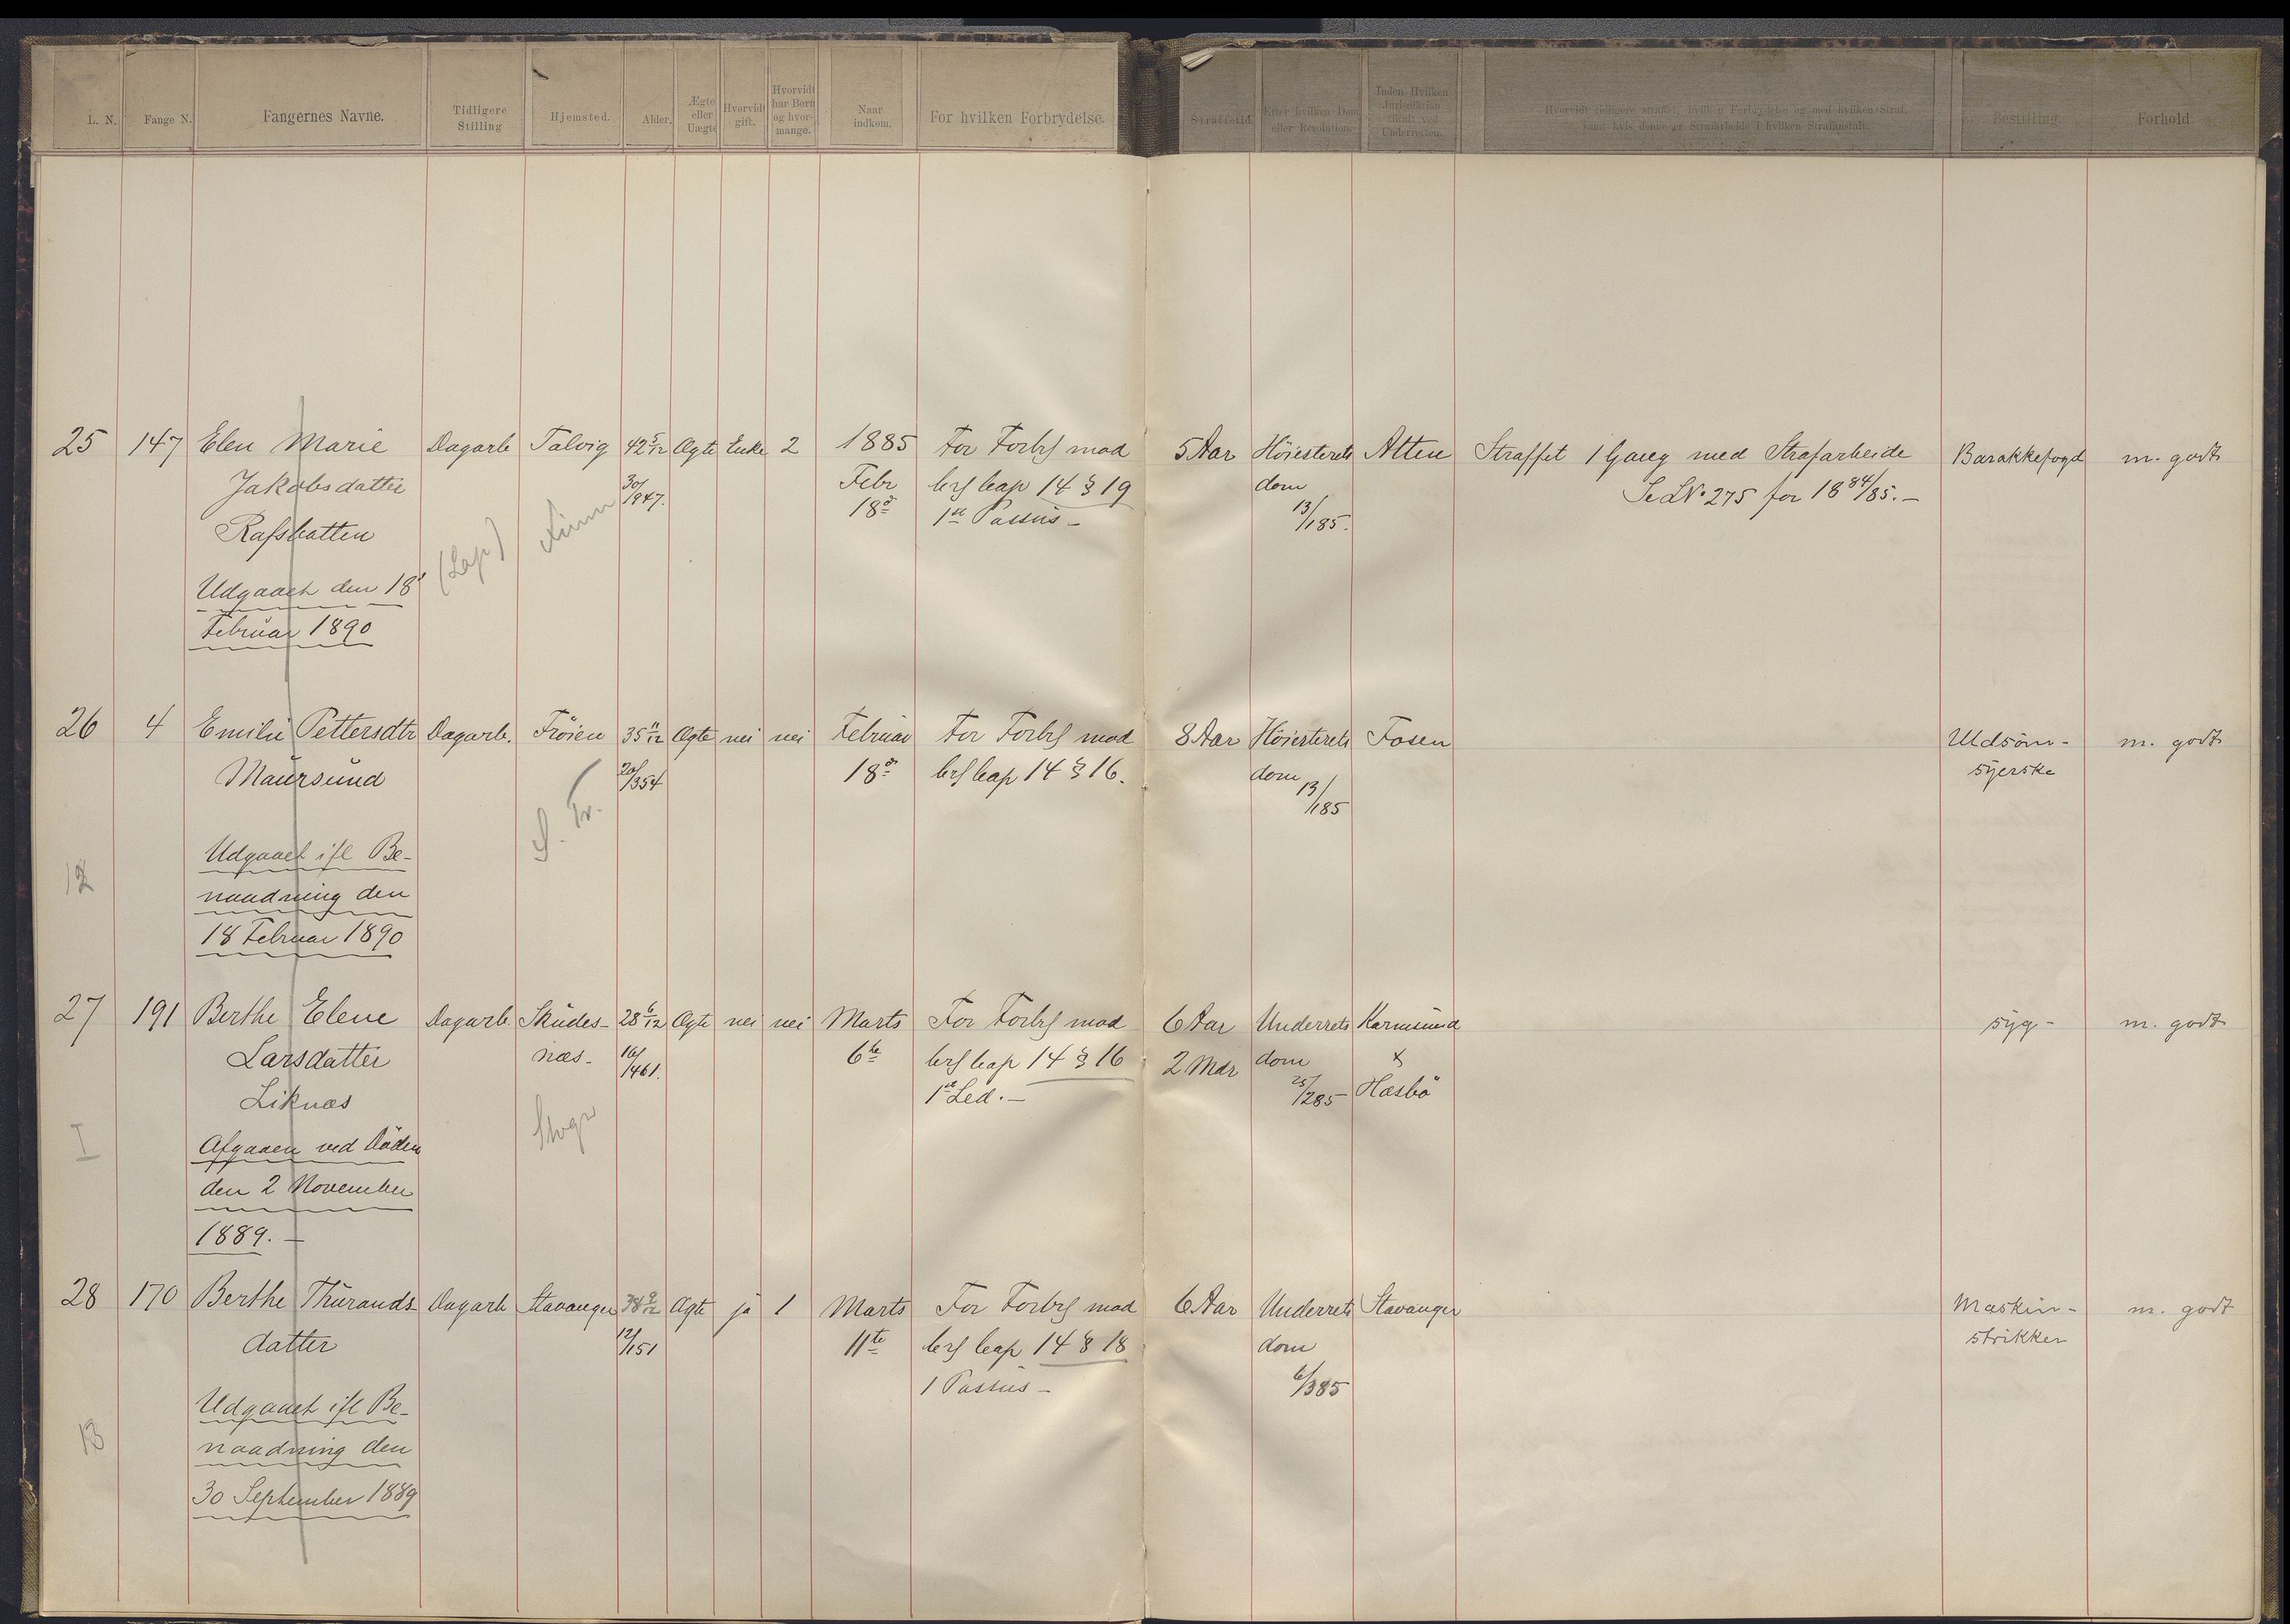 L. N. Fange N. Fangernes Navne. Tidligere Stilling Hjemsted. Alder. Ægte eller Uægte Hvorvidt gift. Hvorvidt har Børn og hvormange. Naar indkom. For hvilken Forbrydelse. Straffetid. Efter hvilken Dom eller Resolution. Inden Hvilken Jurisdiktion dømt ved Underretten. Hvorvidt tidligere straffet, hvilken Forbrydelse og med hvilken Straf, samt hvis denne er Strafarbeide i hvilken Strafanstalt. Bestilling Forhold
25 147 Elen Marie Dagarb Talvig 42 5/12 Ægte Enke 2 1885 For Forbr mod 5 Aar Høiesterets Alten Straffet 1 Gang med Strafarbeide Barakkefogd m. godt
Jakobsdatter 30/947. Febr cap 14 § 19 dom Se LN° 275 for 18 84/85.-
Rafsbatten (Lap) 18de 1ste Passus - 13/185.
Udgaaet den 18de
Februar 1890
26 4 Emilie Pettersdtr Dagarb. Frøien 35 11/12 Ægte nei nei Februar For Forbr mod 8 Aar Høiesterets Fosen Udsöm- m. godt
Maursund 20/354 18de cap 14 § 16. dom syerske
S. Tr. 13/185
Udgaaet ifl Be-
12 naadning den
18 Februar 1890
27 191 Berthe Elene Dagarb. Skudes- 28 6/12 Ægte nei nei Marts For Forbr mod 6 Aar Underrets Karmsund syg - m. godt
Larsdatter næs - 16/461. 6te cap 14 § 16 2 Mdr dom &
Liknæs 1ste Led. - 25/285 Hæsbø
I Afgaaen ved Døden
den 2 November
1889. -
28 170 Berthe Thurands- Dagarb Stavanger 34 2/12 Ægte ja 1 Marts For Forbr mod 6 Aar Underrets Stavanger Maskin- m. godt
datter 12/151 11te cap 14 § 18 dom strikker
1 Passus - 6/385
Udgaaet ifl Be-
13 naadning den
30 September 1889